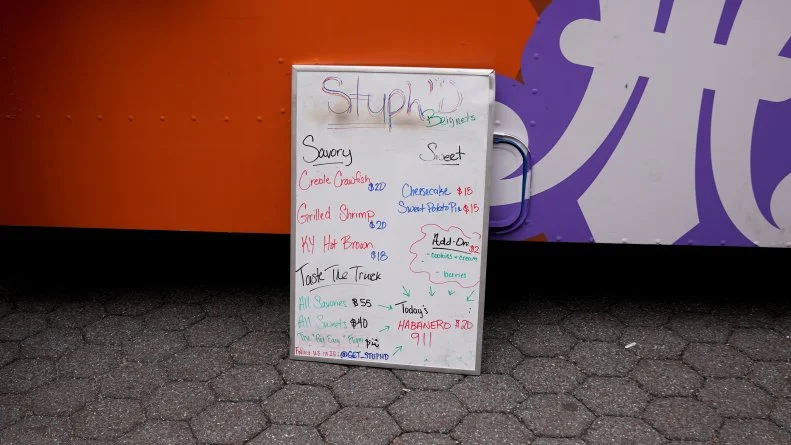 Stuph'D
Beignets
Savory
Creole Crawfish $20
Grilled Shrimp $20
KY Hot Brown $18
Sweet
Cheesecake $15
Sweet Potato Pie $15
Add-On: $2
- cookies + cream
- berries
Taste The Truck
All Savories $55
All Sweets $40
The "Big Easy"
Follow us in IG @GET_STUPHD
Today's :
HABANERO $20
911